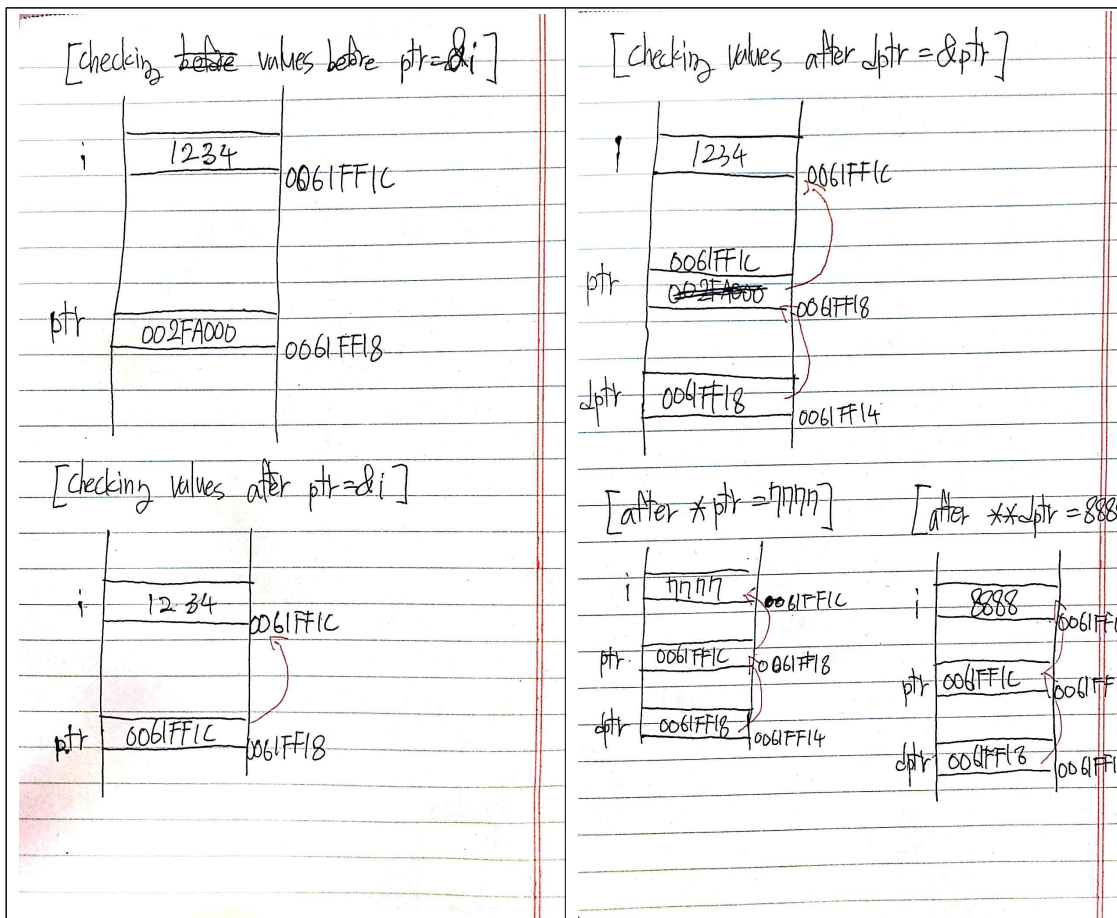 [checking before values before ptr=&i]
i 1234
0061FF1C
ptr 002FA000
0061FF18
[checking values after ptr=&i]
i 1234
0061FF1C
ptr 0061FF1C
0061FF18
[checking values after dptr=&ptr]
i 1234
0061FF1C
0061FF1C
ptr 002FA000
0061FF18
dptr 0061FF18
0061FF14
[after *ptr=7777]
i 7777
0061FF1C
ptr 0061FF1C
0061FF18
dptr 0061FF18
0061FF14
[after **dptr=888
i 8888
0061FF1
ptr 0061FF1C
0061FF
dptr 0061FF18
0061FF1